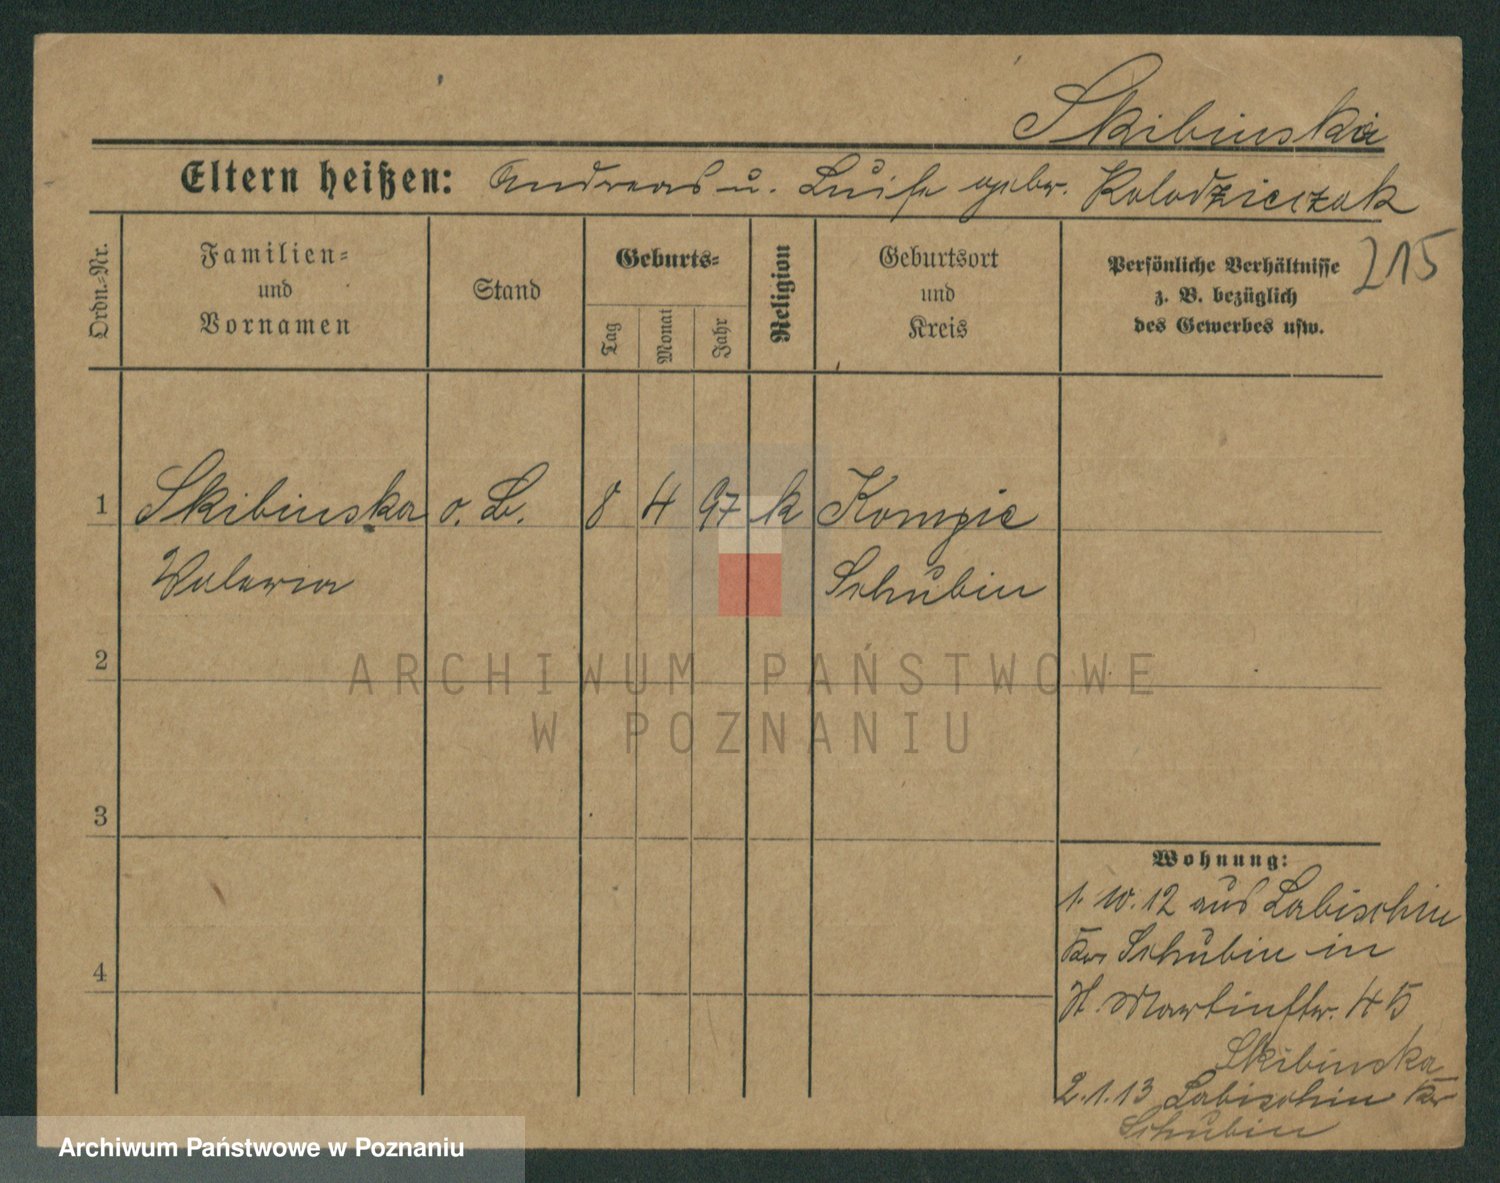 Skibinska
Eltern heißen: Andreas u. Luise gebr. Kolodzieczak
215
Ordn.-Nr.
Familien=
und
Vornamen
Stand
Geburts=
Tag
Monat
Jahr
Religion
Geburtsort
und
Kreis
Persönliche Verhältnisse
z. B. bezüglich
des Gewerbes usw.
1 Skibinska o. B. 8 4 97 k
Waleria Schubin
2
ARCHIWUM PAŃSTWOWE
W POZNANIU
3
4
Wohnung:
1. 10. 12 aus Labischin
Krs Schubin in
St. Martinstr. 45
Skibinska
2. 1. 13 Labischin Kr
Schubin
Archiwum Państwowe w Poznaniu